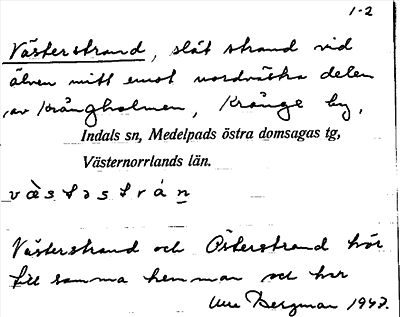 1-2
Västerstrand, slät strand vid
älven mitt emot nordvästra delen
av Krångholmen, Krånge by,
Indals sn, Medelpads östra domsagas tg,
Västernorrlands län.
v ä̀ s t ə s t r á n
Västerstrand och Österstrand hör
till samma hemman och har
Bergman 1947.